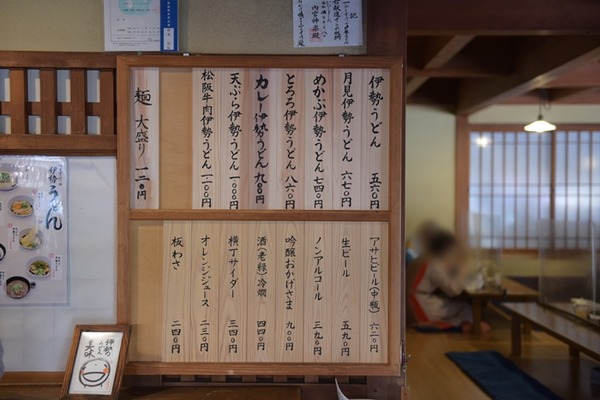 伊勢うどん 五六〇円
月見伊勢うどん 六七〇円
めかぶ伊勢うどん 七四〇円
とろろ伊勢うどん 八六〇円
カレー伊勢うどん 九〇〇円
天ぷら伊勢うどん 一、〇〇〇円
松阪牛肉伊勢うどん 一、一〇〇円
麺 大盛り 一二〇円
アサヒビール(中瓶) 六二〇円
生ビール 五九〇円
ノンアルコール 三九〇円
吟醸おかげさま 九〇〇円
酒(老緑)冷燗 四四〇円
横丁サイダー 三四〇円
オレンジジュース 二三〇円
板わさ 二四〇円
伊勢うどん
伊勢
うどん
美味
記
内宮神楽殿